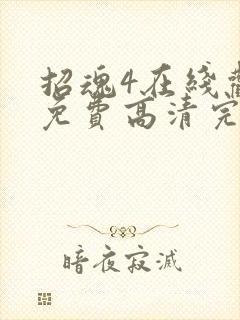 招魂4在线
免费高清完
暗夜寂滅